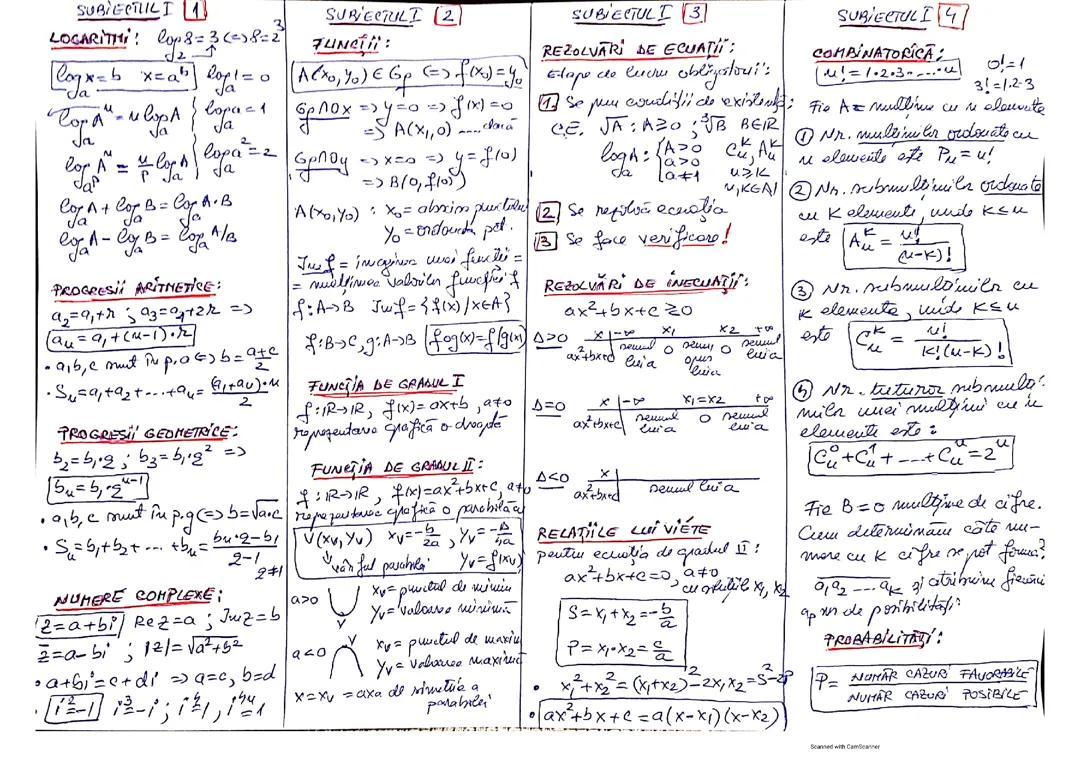 SUBIECTUL I 1
LOGARITMI: log₂8=3 (=) 8=2³
logₐx=b x=aᵇ logₐ1=0
logₐAⁿ=n logₐA logₐa=1
log_{aᵖ}Aⁿ = n/p logₐA logₐa²=2
logₐA + logₐB = logₐA·B
logₐA - logₐB = logₐA/B
PROGRESII ARITMETICE:
a₂=a₁+r; a₃=a₁+2r =>
aₙ=a₁+(n-1)·r
• a,b,c sunt în p.a (=) b=(a+c)/2
• Sₙ=a₁+a₂+...+aₙ=(a₁+aₙ)·n/2
PROGRESII GEOMETRICE:
b₂=b₁·q; b₃=b₁·q² =>
bₙ=b₁·qⁿ⁻¹
• a,b,c sunt în p.g (=) b=√a·c
• Sₙ=b₁+b₂+...+bₙ=(bₙ·q-b₁)/(q-1)
q≠1
NUMERE COMPLEXE:
z=a+bi Re z=a; Im z=b
z̄=a-bi; |z|=√a²+b²
• a+bi=c+di => a=c, b=d
• i²=-1 i³=-i; i⁴=1, i⁴ⁿ=1
SUBIECTUL I 2
FUNCȚII:
A(x₀,y₀)∈Gf (=) f(x₀)=y₀
Gf∩Ox => y=0 => f(x)=0
=> A(x₁,0) .... dacă
Gf∩Oy => x=0 => y=f(0)
=> B(0,f(0))
A(x₀,y₀): x₀=abscisa punctului
y₀=ordonata pct.
Im f = imaginea unei funcții =
= mulțimea valorilor funcției f
f:A→B Im f={f(x)/x∈A}
f:B→C, g:A→B fog(x)=f(g(x))
FUNCȚIA DE GRADUL I
f:ℝ→ℝ, f(x)=ax+b, a≠0
reprezentare grafică o dreaptă
FUNCȚIA DE GRADUL II:
f:ℝ→ℝ, f(x)=ax²+bx+c, a≠0
reprezentarea grafică o parabolă
V(xᵥ,yᵥ) xᵥ=-b/2a, yᵥ=-Δ/4a
vârful parabolei yᵥ=f(xᵥ)
a>0 xᵥ=punctul de minim
V yᵥ=valoarea minimă
a<0 V xᵥ=punctul de maxim
yᵥ=valoarea maximă
x=xᵥ=axa de simetrie a
parabolei
SUBIECTUL I 3
REZOLVĂRI DE ECUAȚII:
Etape de lucru obligatorii:
1. Se pun condiții de existență:
C.E. √A: A≥0; ³√B B∈ℝ
logₐA: A>0 Cₙᵏ, Aₙᵏ
a>0 n≥k
a≠1 n,k∈ℕ
2 Se rezolvă ecuația
3 Se face verificare!
REZOLVĂRI DE INECUAȚII:
ax²+bx+c≥0
Δ>0 x -∞ x₁ x₂ +∞
ax²+bx+c semnul lui a 0 semn opus lui a 0 semnul lui a
Δ=0 x -∞ x₁=x₂ +∞
ax²+bx+c semnul lui a 0 semnul lui a
Δ<0 x
ax²+bx+c semnul lui a
RELAȚIILE LUI VIÈTE
pentru ecuația de gradul II:
ax²+bx+c=0, a≠0
cu soluțiile x₁, x₂
S=x₁+x₂=-b/a
P=x₁·x₂=c/a
• x₁²+x₂²=(x₁+x₂)²-2x₁x₂=S²-2P
• ax²+bx+c=a(x-x₁)(x-x₂)
SUBIECTUL I 4
COMBINATORICĂ:
n!=1·2·3·...·n 0!=1
3!=1·2·3
Fie A=mulțime cu n elemente
① Nr. mulțimilor ordonate cu
n elemente este Pₙ=n!
② Nr. submulțimilor ordonate
cu k elemente, unde k≤n
este Aₙᵏ=n!/(n-k)!
③ Nr. submulțimilor cu
k elemente, unde k≤n
este Cₙᵏ=n!/k!(n-k)!
Nr. tuturor submulți-
milor unei mulțimi cu n
elemente este:
Cₙ⁰+Cₙ¹+...+Cₙⁿ=2ⁿ
Fie B=o mulțime de cifre.
Cum determinăm câte nu-
mere cu k cifre se pot forma?
a₁a₂....aₖ și atribuim fiecărui
nr de posibilități
PROBABILITĂȚI:
P=NUMĂR CAZURI FAVORABILE/NUMĂR CAZURI POSIBILE
Scanned with CamScanner